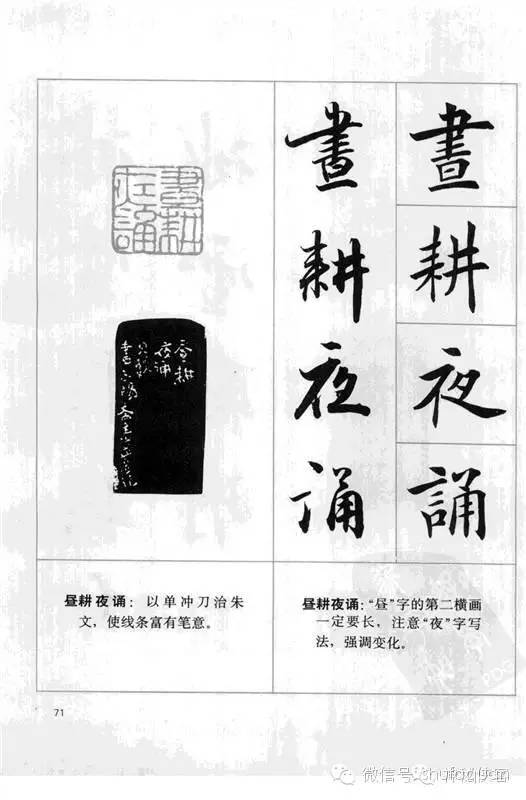 晝耕夜誦
晝耕夜诵
晝耕夜誦
昼耕
夜诵
昼耕夜诵：以单冲刀治朱
文，使线条富有笔意。
昼耕夜诵：“昼”字的第二横画
一定要长，注意“夜”字写
法，强调变化。
71
微信号